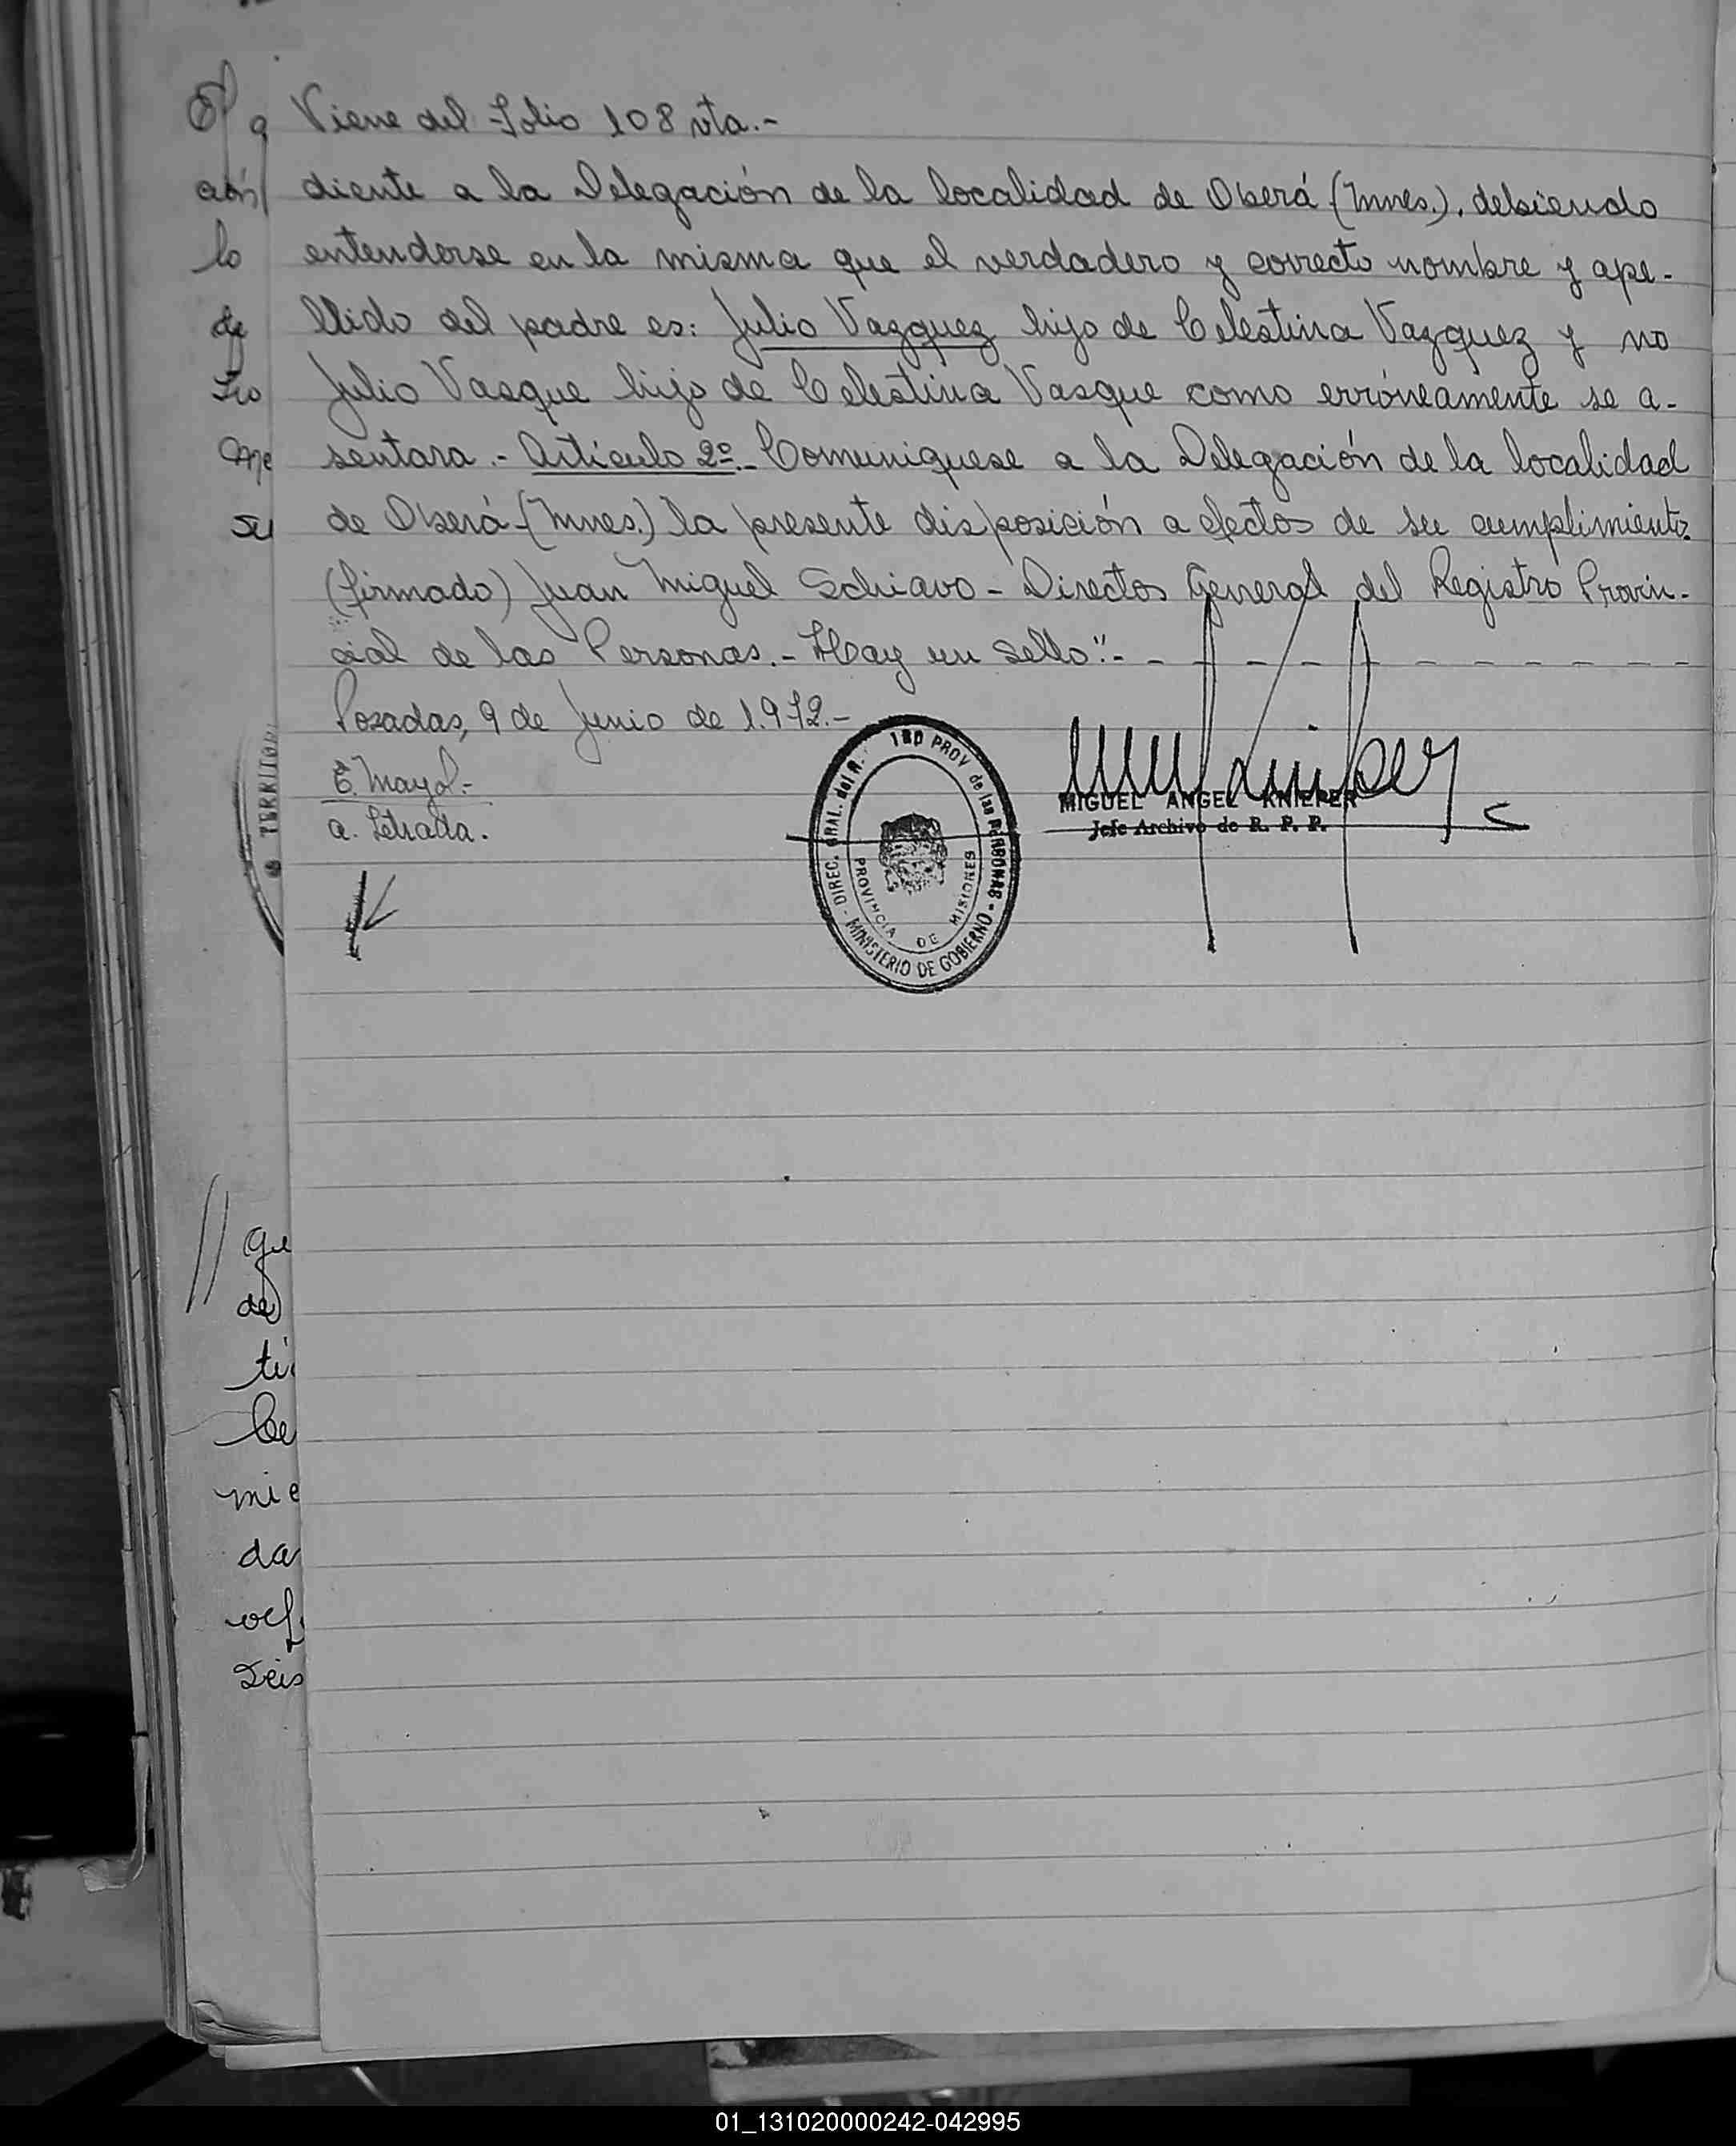 Viene del Folio 108 vta.-
diente a la Delegación de la localidad de Oberá (Mnes.). debiendo
entenderse en la misma que el verdadero y correcto nombre y ape-
llido del padre es: Julio Vazquez hijo de Celestina Vazquez y no
Julio Vasque hijo de Celestina Vasque como erróneamente se a-
sentara.- Artículo 2º.- Comuniquese a la Delegación de la localidad
de Oberá-(Mnes.) la presente disposición a efectos de su cumplimiento.
(firmado) Juan Miguel Schiavo - Director General del Registro Provin-
cial de las Personas.- Hay un sello".- - - - - - - - - - -
Posadas, 9 de Junio de 1.972.-
E. Mayol.-
a. Letrada.
DIREC. GRAL. del R. PROV de las PERSONAS - MINISTERIO DE GOBIERNO -
PROVINCIA DE MISIONES
MIGUEL ANGEL KNIEPER
Jefe Archivo de R. P. P.
TERRITORI
lo
de
su
que
de
da
01_131020000242-042995